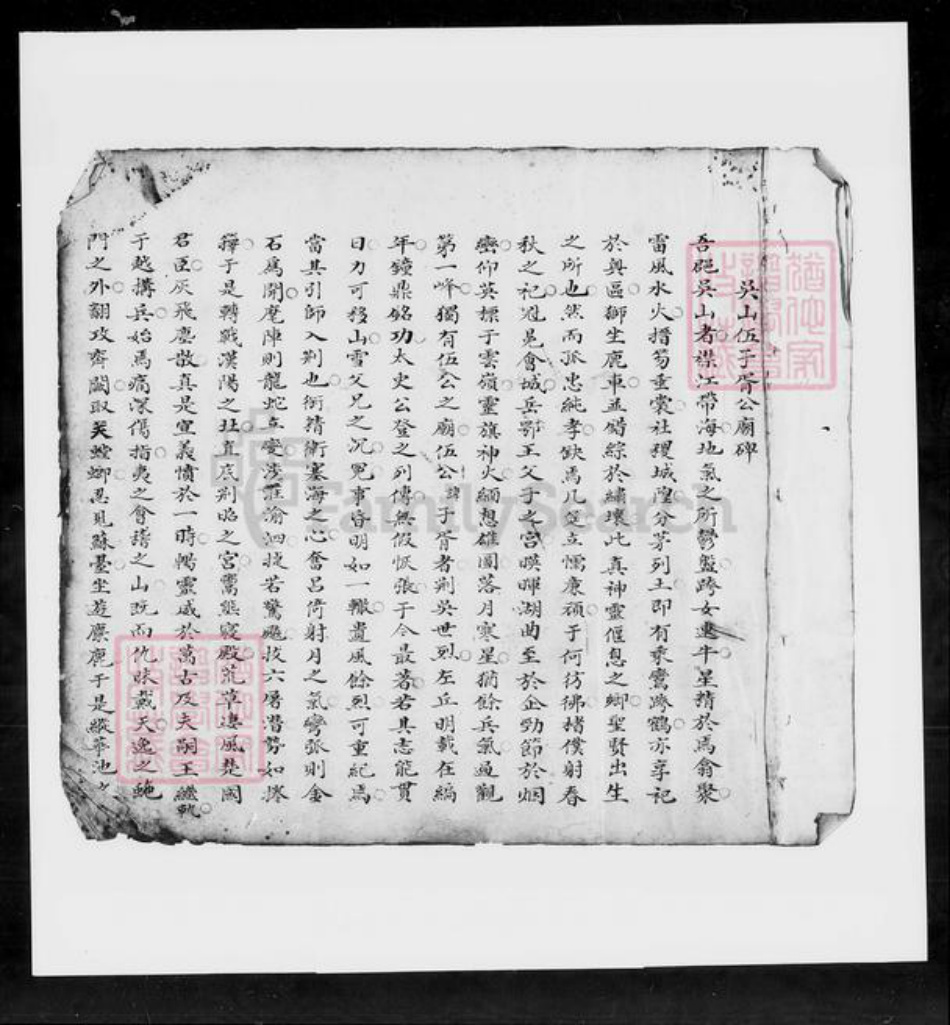 吳山伍子胥公廟碑
吾杞吳山者襟江帶海地氣之所鬱盤跨女邀牛星精於焉翕聚
雷風水火搢笏垂裳社稷城隍分茅列土即有乘鸞跨鶴亦享祀
於輿區獅生鹿車並錯綜於繡壤此真神靈偃息之鄉聖賢出生
之所也然而孤忠純孝缺焉凡定立懦廉頑于何彷彿褚僕射春
秋之祀冠冕會城岳鄂王父子之宮暎暉湖曲至於企勁節於烟
巒仰英標于雲嶺靈旗神火緬想雄圖落月寒星猶餘兵氣過觀
第一峰獨有伍公之廟伍公諱子胥者荆吳世烈左丘明載在編
年鐘鼎銘功太史公登之列傳無假恢張于今最著若其志能貫
日力可移山雪父兄之沉冤事昏明如一轍遺風餘烈可重紀焉
當其引師入荆也銜精衛塞海之心奮呂倚射月之氣彎張則金
石爲開麾陣則龍蛇立變涉淮渝泗捷若驚飈拔六屠潛勢如揉
籜于是轉戰漢陽之北直底荆昭之宮鸞熊寢殿荒草連風楚國
君臣灰飛塵散真是宣義憤於一時暢靈威於萬古及夫嗣王繼軌
于越搆兵始焉痛深傷指夷之會稽之山既而仇昧戴天逸之
門之外翻攻齊闕取笑螳螂忍見蘇臺坐遊麋鹿于是縱華池
FamilySearch